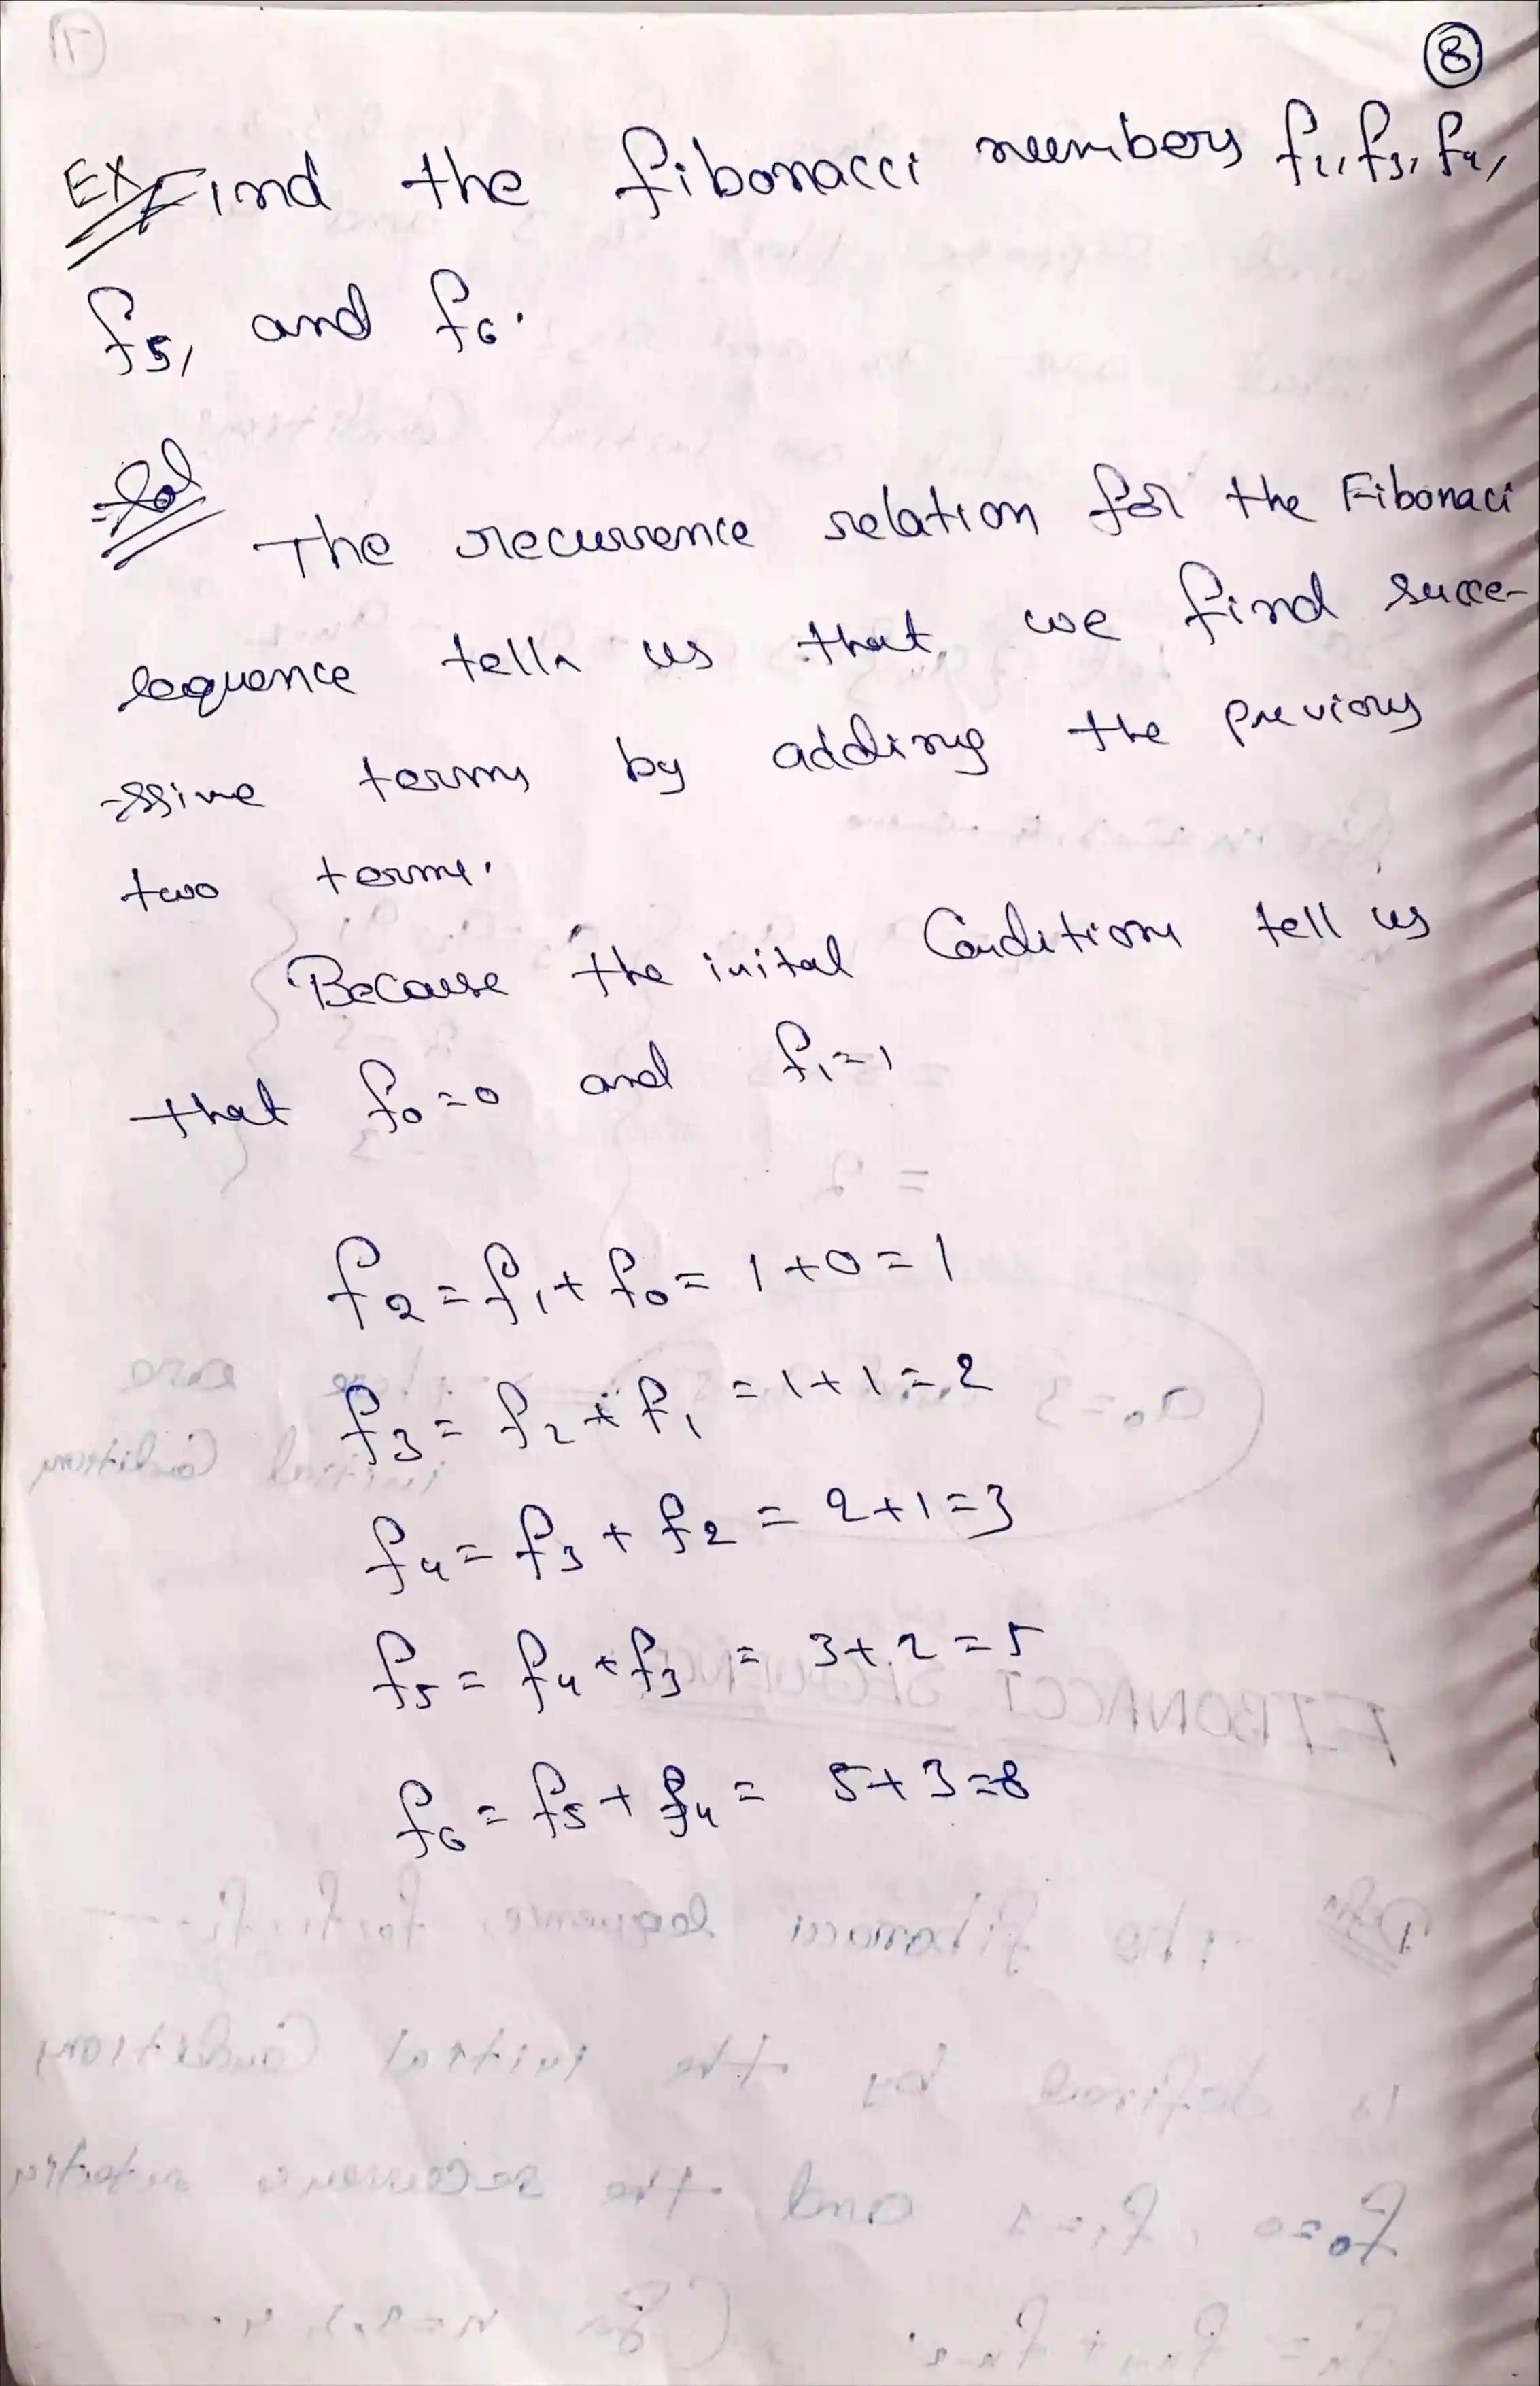 8
Ex Find the fibonacci numbers f2, f3, f4,
f5, and f6.
Sol
The recurrence relation for the Fibonaci
sequence tells us that we find succe-
-ssive terms by adding the previous
two terms.
Because the inital Conditions tell us
that f0=0 and f1=1
f2=f1+f0=1+0=1
f3=f2+f1=1+1=2
f4=f3+f2=2+1=3
f5=f4+f3=3+2=5
f6=f5+f4=5+3=8